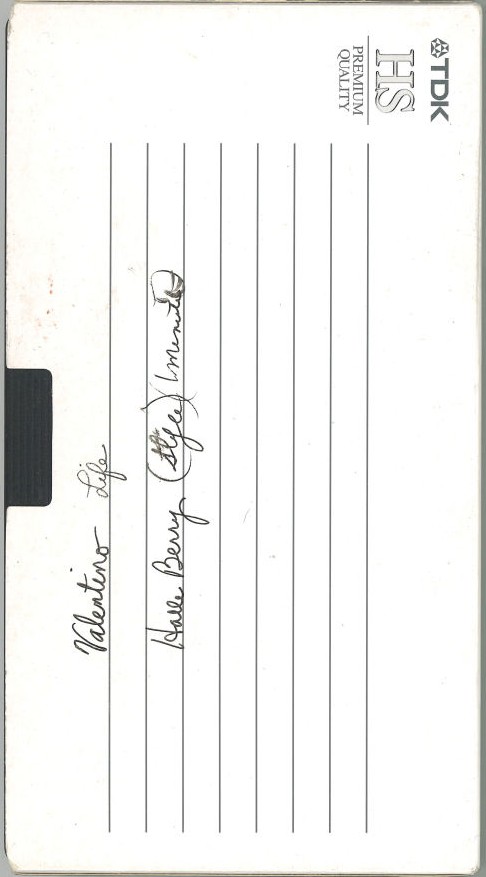 TDK
HS
PREMIUM
QUALITY
Valentino Life
Halle Berry (Style) 1 minute